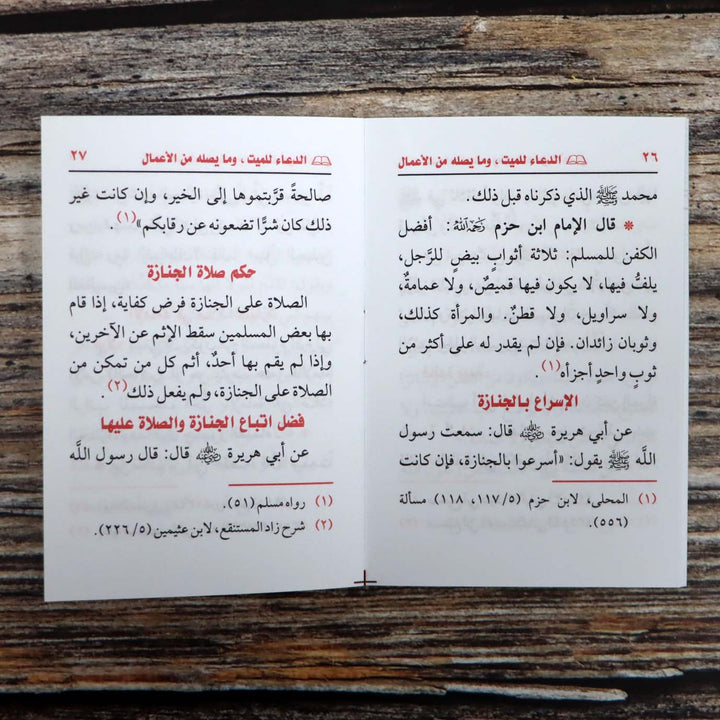 ٢٦ الدعاء للميت، وما يصله من الأعمال
محمد ﷺ الذي ذكرناه قبل ذلك.
* قال الإمام ابن حزم رَحِمَهُ اللَّهُ: أفضل
الكفن للمسلم: ثلاثة أثوابٍ بيضٍ للرَّجل،
يلفُّ فيها، لا يكون فيها قميصٌ، ولا عمامةٌ،
ولا سراويل، ولا قطنٌ. والمرأة كذلك،
وثوبان زائدان. فإن لم يقدر له على أكثر من
ثوبٍ واحدٍ أجزأه(١).
الإسراع بالجنازة
عن أبي هريرة رضي الله عنه قال: سمعت رسول
اللَّه ﷺ يقول: «أسرعوا بالجنازة، فإن كانت
(١) المحلى، لابن حزم (٥/ ١١٧، ١١٨) مسألة
(٥٥٦).
الدعاء للميت، وما يصله من الأعمال ٢٧
صالحةً قرَّبتموها إلى الخير، وإن كانت غير
ذلك كان شرًّا تضعونه عن رقابكم»(١).
حكم صلاة الجنازة
الصلاة على الجنازة فرض كفاية، إذا قام
بها بعض المسلمين سقط الإثم عن الآخرين،
وإذا لم يقم بها أحدٌ، أثم كل من تمكن من
الصلاة على الجنازة، ولم يفعل ذلك(٢).
فضل اتباع الجنازة والصلاة عليها
عن أبي هريرة رضي الله عنه قال: قال رسول اللَّه
(١) رواه مسلم (٥١).
(٢) شرح زاد المستقنع، لابن عثيمين (٥/ ٢٢٦).